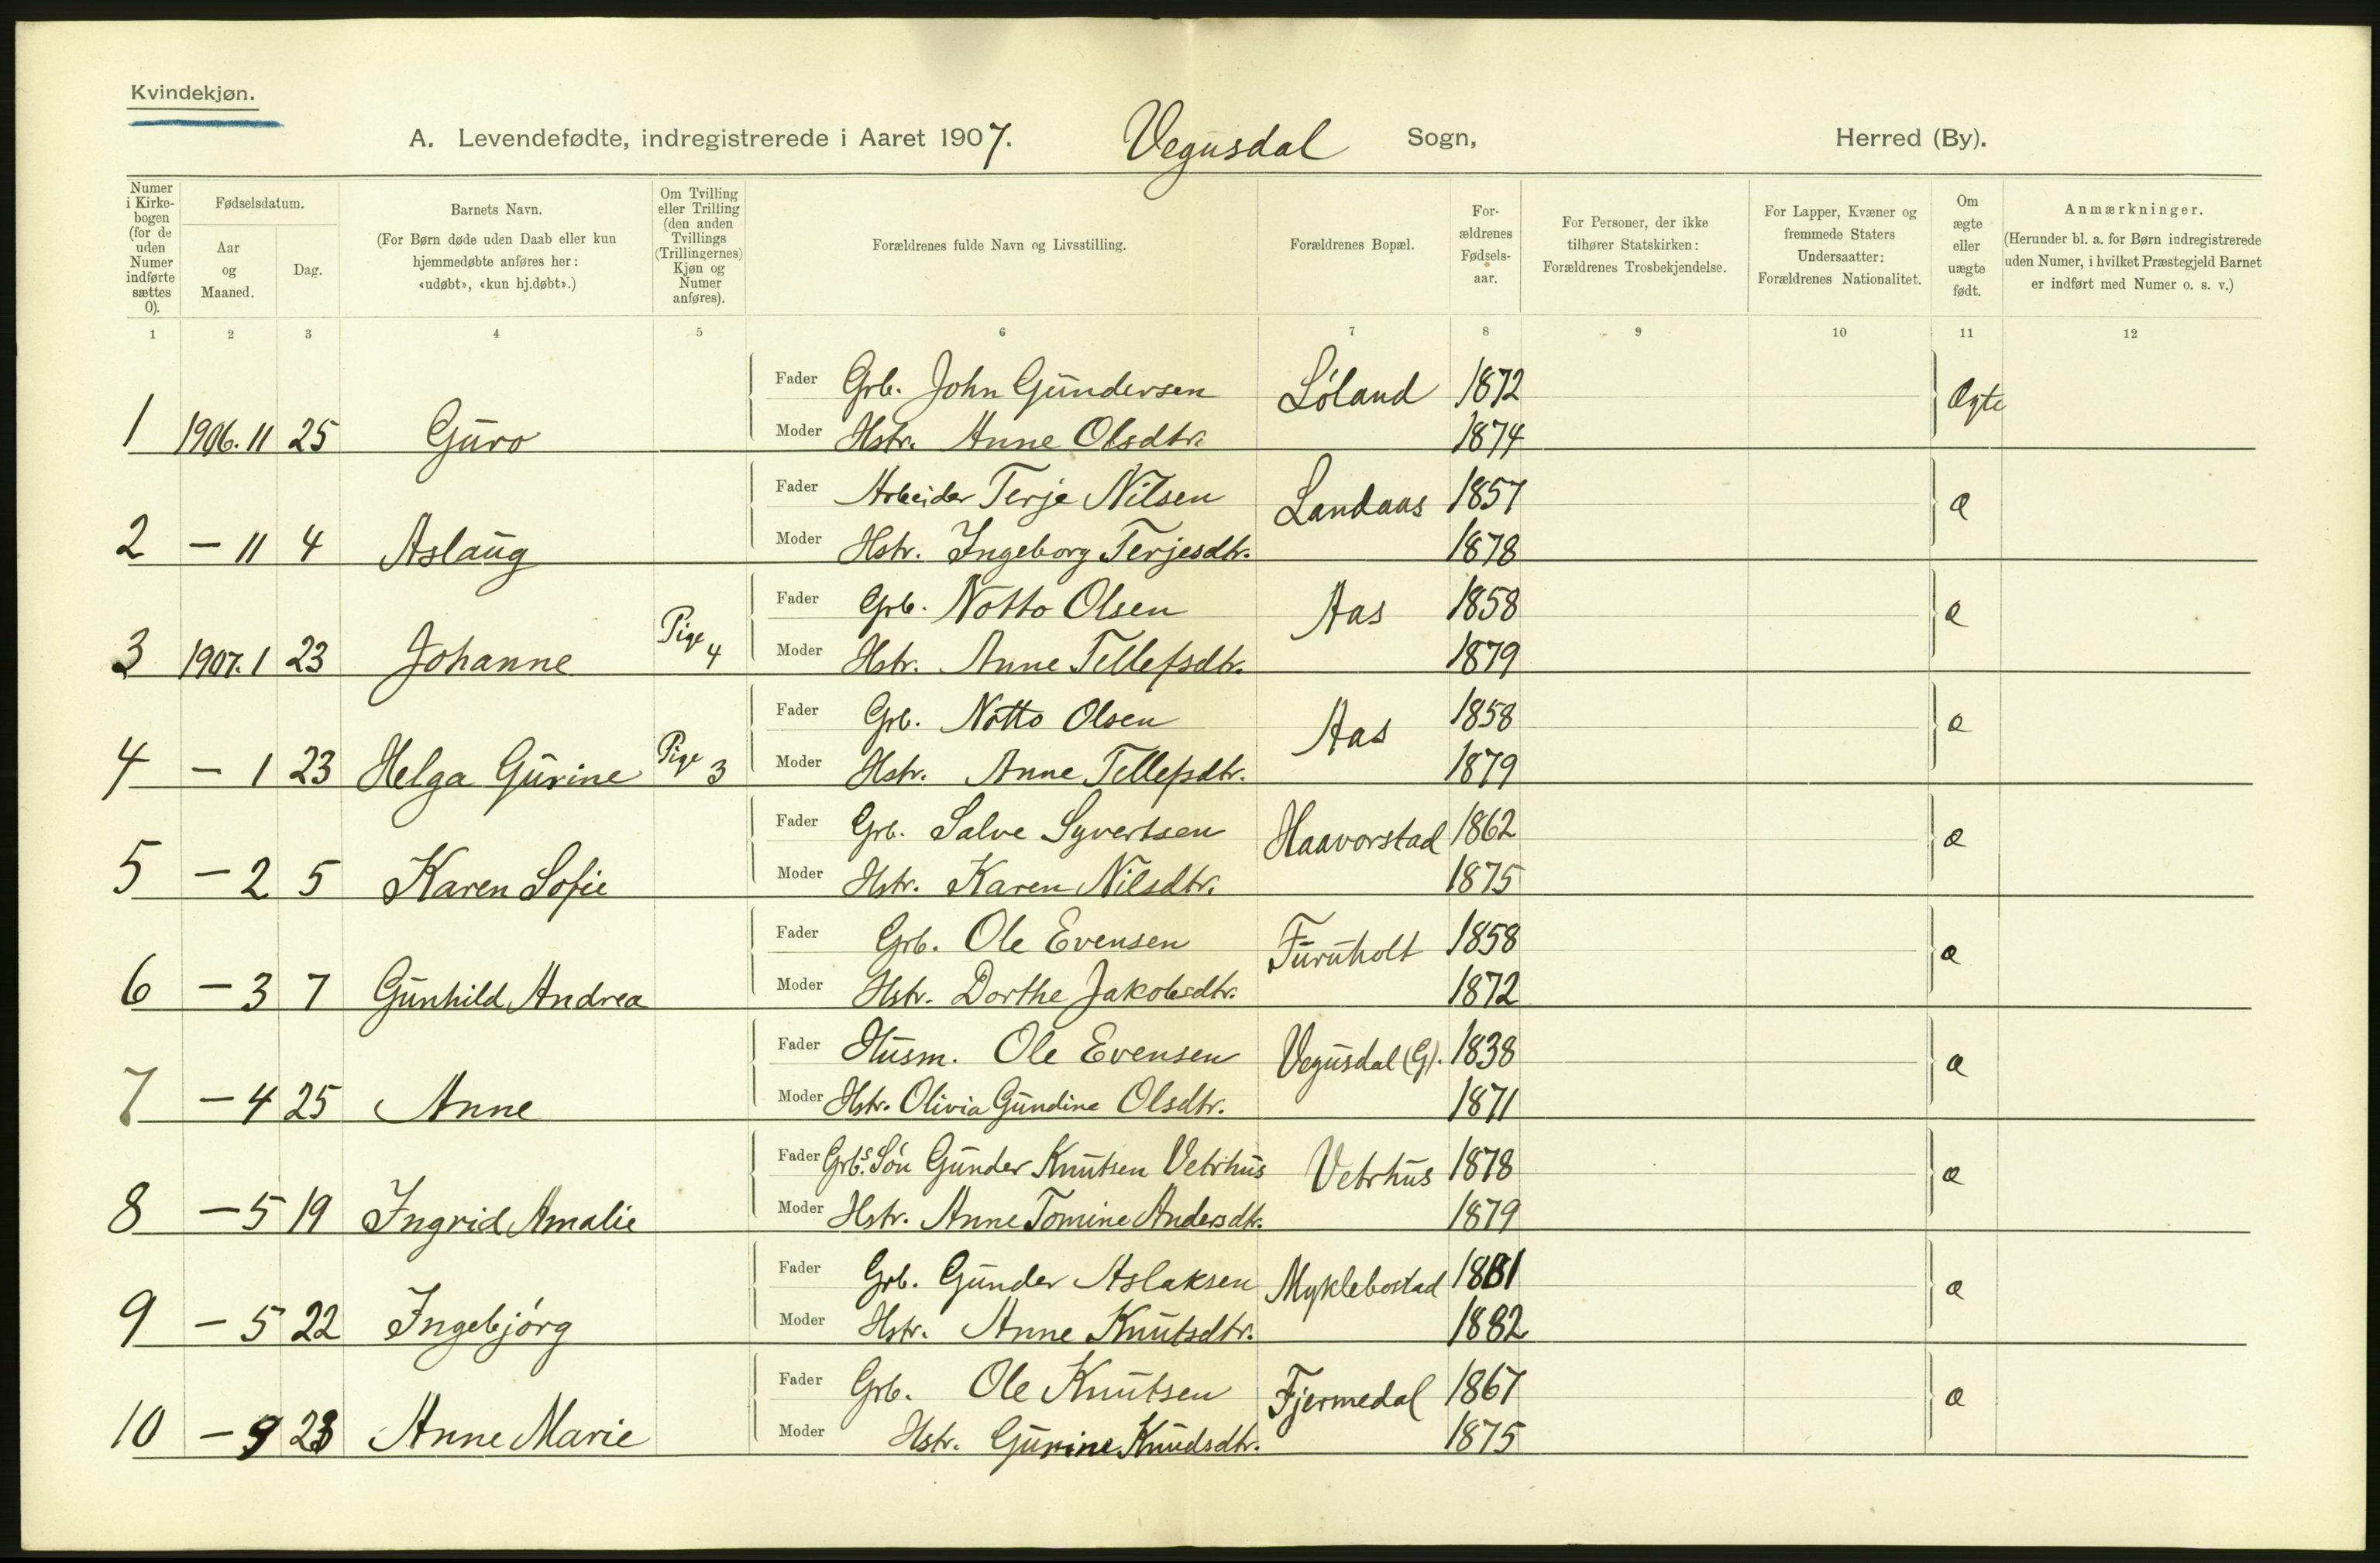 Kvindekjøn.
A. Levendefødte, indregistrerede i Aaret 1907. Vegusdal Sogn, Herred (By).
Numer i Kirkebogen (for de uden Numer indførte sættes 0).
Fødselsdatum.
Aar og Maaned.
Dag.
Barnets Navn.
(For Børn døde uden Daab eller kun hjemmedøbte anføres her: «udøbt», «kun hj.døbt».)
Om Tvilling eller Trilling (den anden Tvillings (Trillingernes) Kjøn og Numer anføres).
Forældrenes fulde Navn og Livsstilling.
Forældrenes Bopæl.
Forældrenes Fødselsaar.
For Personer, der ikke tilhører Statskirken: Forældrenes Trosbekjendelse.
For Lapper, Kvæner og fremmede Staters Undersaatter: Forældrenes Nationalitet.
Om ægte eller uægte født.
Anmærkninger.
(Herunder bl. a. for Børn indregistrerede uden Numer, i hvilket Præstegjeld Barnet er indført med Numer o. s. v.)
1 2 3 4 5 6 7 8 9 10 11 12
Fader Grb. John Gundersen Løland 1872 Ægte
1 1906. 11 25 Guro Moder Hstr. Anne Olsdtr. 1874
Fader Arbeider Terje Nilsen Landaas 1857 æ
2 — 11 4 Aslaug Moder Hstr. Ingeborg Terjesdtr. 1878
Fader Grb. Notto Olsen Aas 1858 æ
3 1907. 1 23 Johanne Pige 4 Moder Hstr. Anne Tellefsdtr. 1879
Fader Grb. Notto Olsen Aas 1858 æ
4 — 1 23 Helga Gurine Pige 3 Moder Hstr. Anne Tellefsdtr. 1879
Fader Grb. Salve Syvertsen Haavorstad 1862 æ
5 — 2 5 Karen Sofie Moder Hstr. Karen Nilsdtr. 1875
Fader Grb. Ole Evensen Furuholt 1858 æ
6 — 3 7 Gunhild Andrea Moder Hstr. Dorthe Jakobsdtr. 1872
Fader Husm. Ole Evensen Vegusdal (G). 1838 æ
7 — 4 25 Anne Moder Hstr. Olivia Gundine Olsdtr. 1871
Fader Grb.s Søn Gunder Knutsen Vetrhus Vetrhus 1878 æ
8 — 5 19 Ingrid Amalie Moder Hstr. Anne Tomine Andersdtr. 1879
Fader Grb. Gunder Aslaksen Myklebostad 1881 æ
9 — 5 22 Ingebjørg Moder Hstr. Anne Knutsdtr. 1882
Fader Grb. Ole Knutsen Fjermedal 1867 æ
10 — 9 23 Anne Marie Moder Hstr. Gurine Knudsdtr. 1875